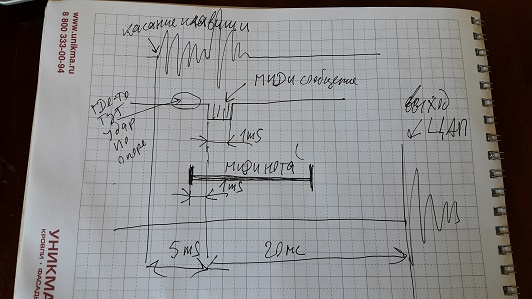 касание клавиши
миди сообщение
где-то
тут
удар
по
опоре
1ms
миди нота
1ms
выход
ЦАП
5ms
20мс
www.unikma.ru
8 800 333-00-94
УНИКМА
КРОВЛИ • ФАСАДЫ